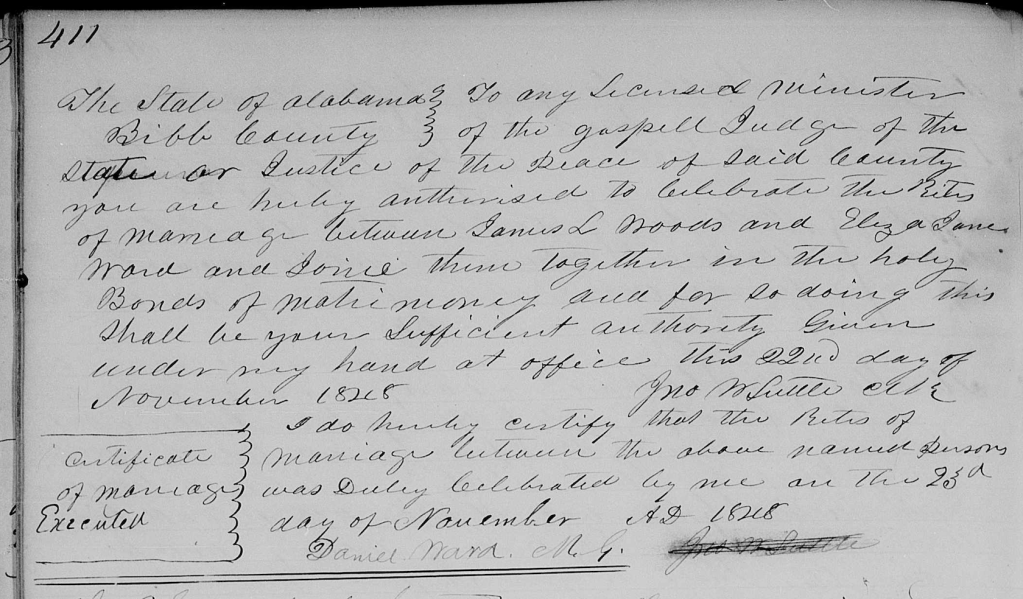 411
The State of alabama } To any Licensed minister
Bibb County } of the gospell Judge of the
State or Justice of the Peace of Said County
you are herby authorised to Celebrate the Rites
of marriage between James L Woods and Eliza Jane
Ward and Joinie them together in the holy
Bonds of matrimoney and for so doing this
Shall be your Sufficient authority Given
under my hand at office this 22nd day of
November 1848 Jno W Suttle
I do herby certify that the Rites of
certificate marriage between the above named Persons
of marriage was Duley Celebrated by me on the 23d
Executed day of November AD 1848
Daniel Ward. M. G. Jno W Suttle